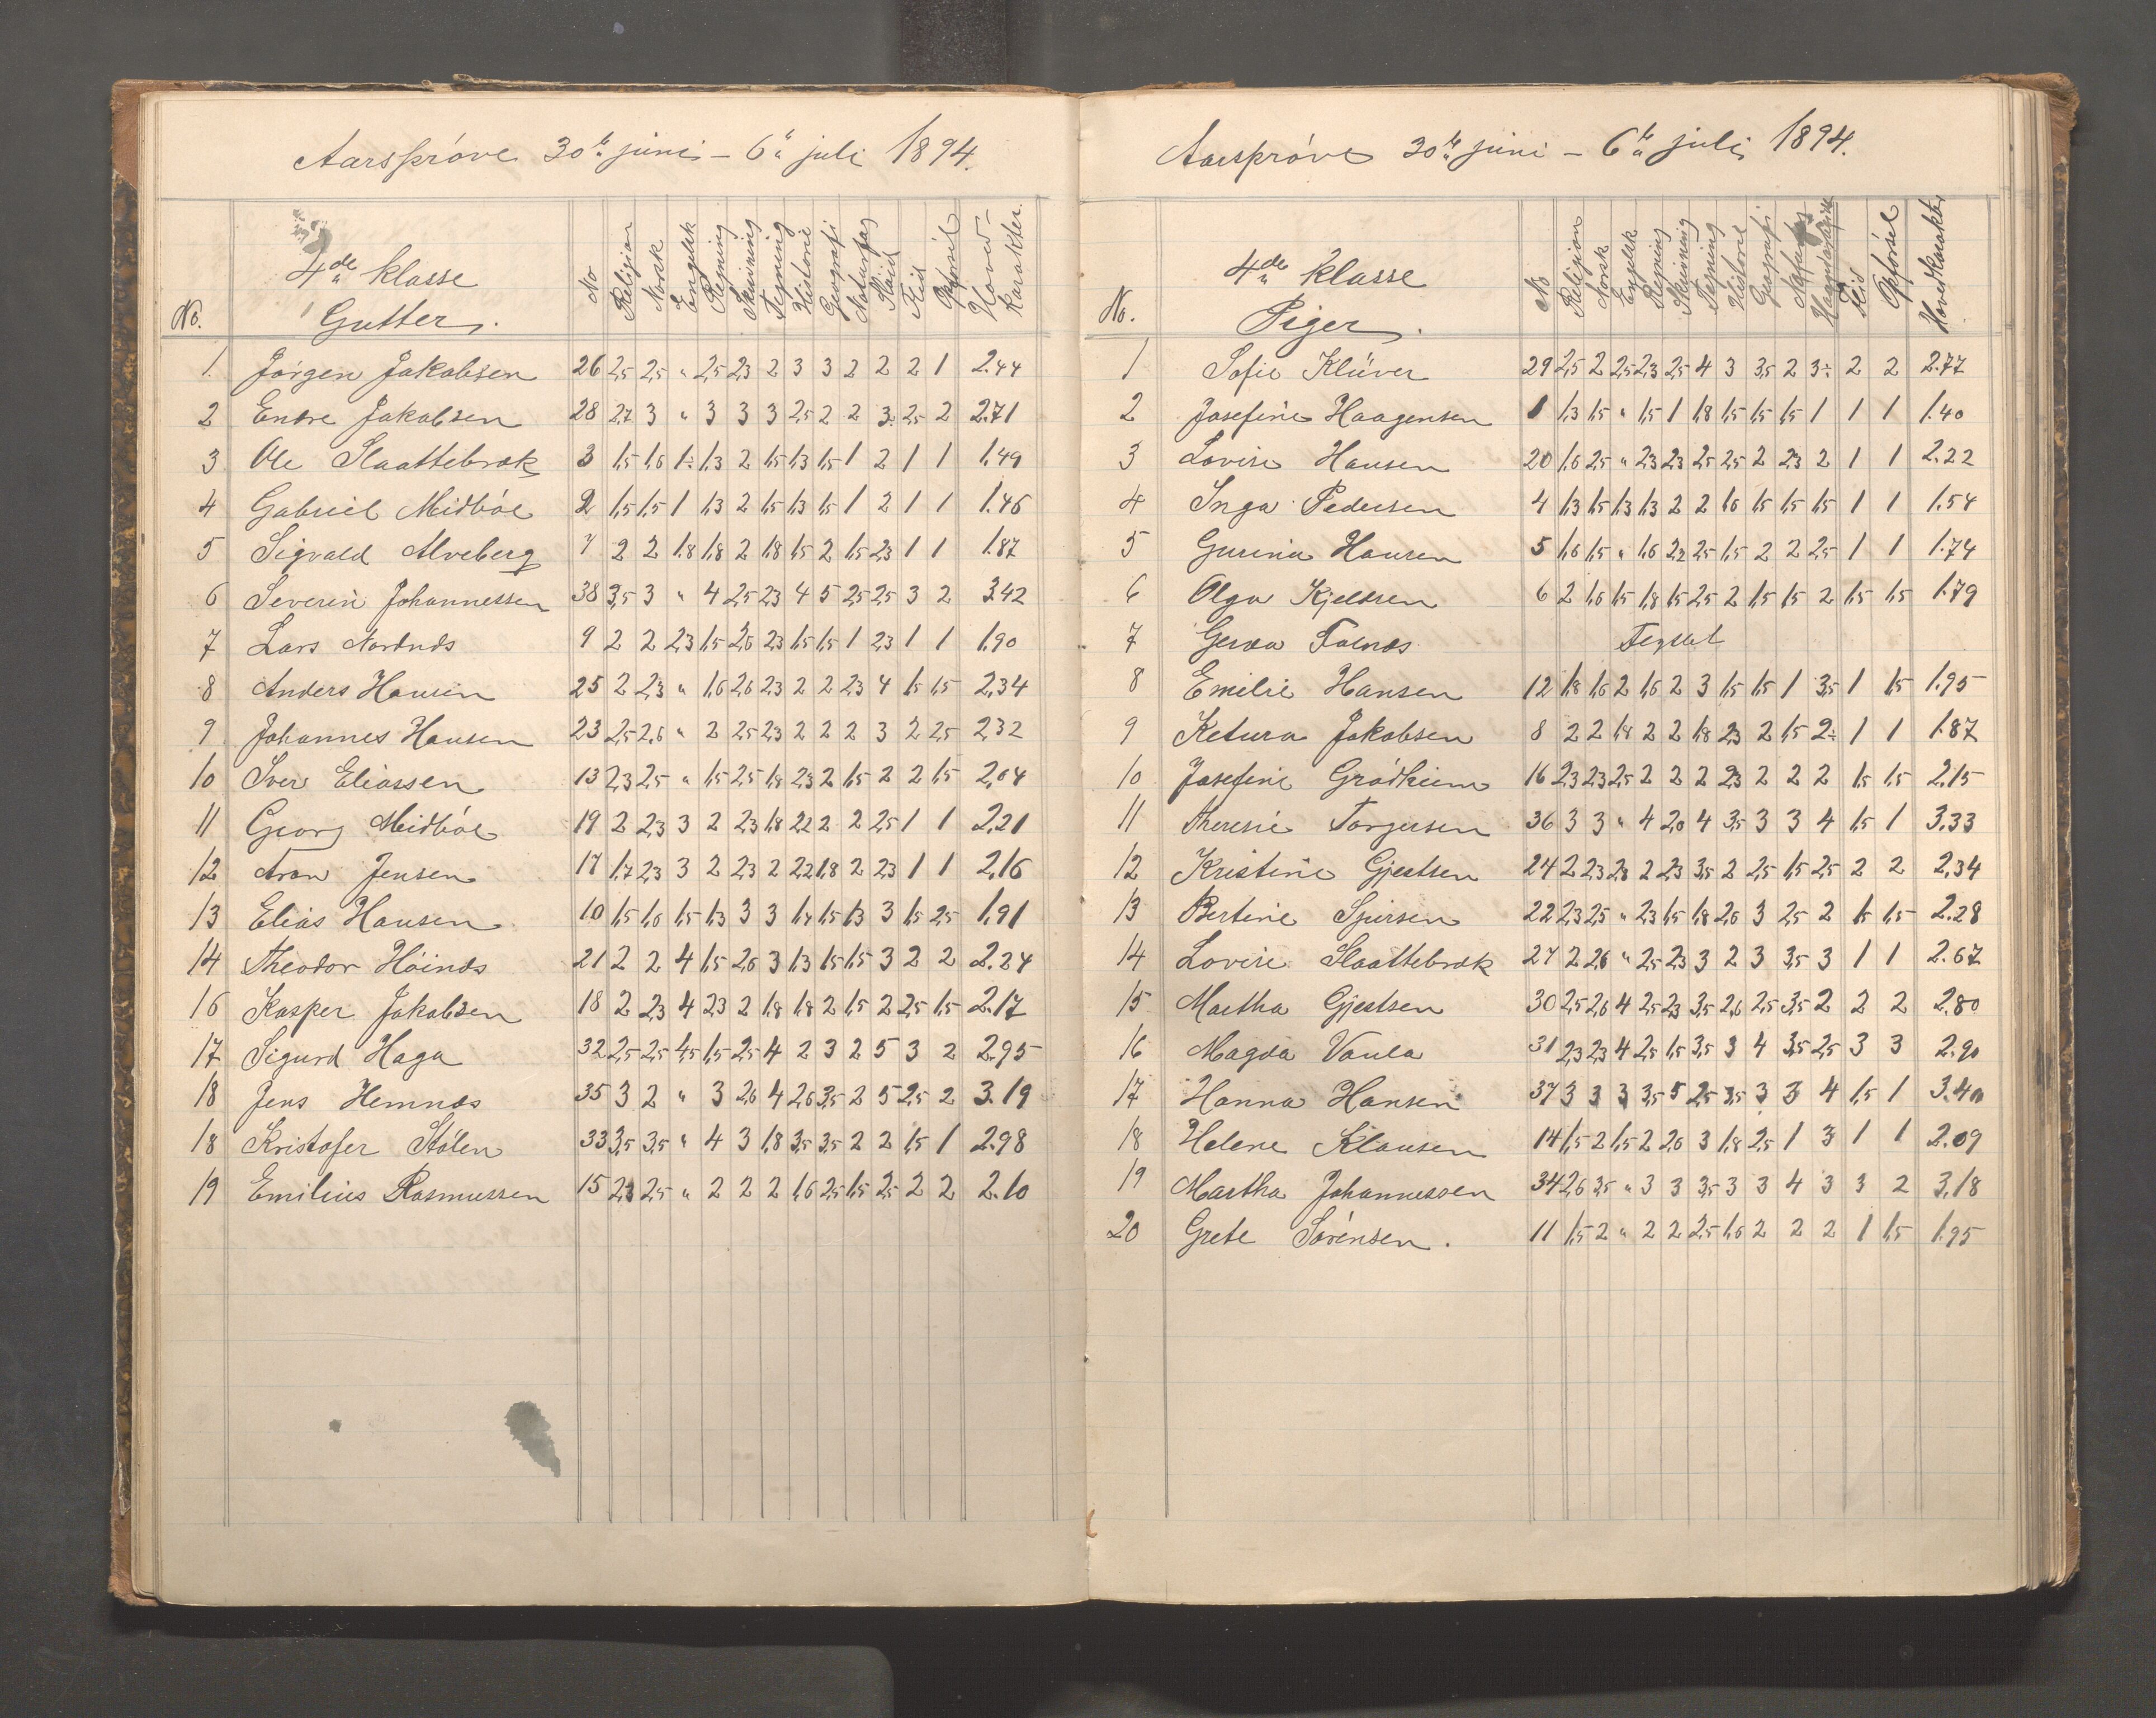 Aarsprøve 30te juni – 6te juli 1894.
4de klasse
No. Gutter. No Religion Norsk Engelsk Regning Skrivning Tegning Historie Geografi Naturfag Sløid Flid Opførsel Hoved-Karakter.
1 Jørgen Jakobsen 26 2,5 2,5 " 2,5 2,3 2 3 3 2 2 2 1 2.44
2 Endre Jakobsen 28 2,7 3 " 3 3 3 2,5 2 2 3÷ 2,5 2 2.71
3 Ole Slaattebræk 3 1,5 1,6 1÷ 1,3 2 1,5 1,3 1,5 1 2 1 1 1.49
4 Gabriel Midbøe 2 1,5 1,5 1 1,3 2 1,5 1,3 1,5 1 2 1 1 1.46
5 Sigvald Alveberg 7 2 2 1,8 1,8 2 1,8 1,5 2 1,5 2,3 1 1 1.87
6 Severin Johannessen 38 3,5 3 " 4 2,5 2,3 4 5 2,5 2,5 3 2 3.42
7 Lars Nordnæs 9 2 2 2,3 1,5 2,6 2,3 1,5 1,5 1 2,3 1 1 1.90
8 Anders Hansen 25 2 2,3 " 1,6 2,6 2,3 2 2 2,3 4 1,5 1,5 2,34
9 Johannes Hansen 23 2,5 2,6 " 2 2,5 2,3 2 2 2 3 2 2,5 2,32
10 Sver Eliassen 13 2,3 2,5 " 1,5 2,5 1,8 2,3 2 1,5 2 2 1,5 2,04
11 Georg Midbøe 19 2 2,3 3 2 2,3 1,8 2,2 2 2 2,5 1 1 2,21
12 Aron Jensen 17 1,7 2,3 3 2 2,3 2 2,2 1,8 2 2,3 1 1 2,16
13 Elias Hansen 10 1,5 1,6 1,5 1,3 3 3 1,4 1,5 1,3 3 1,5 2,5 1,91
14 Theodor Høines 21 2 2 4 1,5 2,6 3 1,3 1,5 1,5 3 2 2 2.24
16 Kasper Jakobsen 18 2 2,3 4 2,3 2 1,8 1,8 2 1,5 2 2,5 1,5 2.17
17 Sigurd Haga 32 2,5 2,5 4,5 1,5 2,5 4 2 3 2 5 3 2 2.95
18 Jens Hemnæs 35 3 2 " 3 2,6 4 2,6 3,5 2 5 2,5 2 3.19
18 Kristofer Stølen 33 3,5 3,5 " 4 3 1,8 3,5 3,5 2 2 1,5 1 2.98
19 Emilius Rasmussen 15 2,3 2,5 " 2 2 2 1,6 2,5 1,5 2,5 2 2 2.10
Aarsprøve 30te juni – 6te juli 1894.
4de klasse
No. Piger. No Religion Norsk Engelsk Regning Skrivning Tegning Historie Geografi Naturfag Haandarbeide Flid Opførsel Hovedkarakter
1 Sofie Klüver 29 2,5 2 2,5 2,3 2,5 4 3 3,5 2 3÷ 2 2 2.77
2 Josefine Haagensen 1 1,3 1,5 " 1,5 1 1,8 1,5 1,5 1,5 1 1 1 1.40
3 Lovise Hansen 20 1,6 2,5 " 2,3 2,3 2,5 2,5 2 2,3 2 1 1 2.22
4 Inga Pedersen 4 1,3 1,5 1,3 1,3 2 2 1,6 1,5 1,5 1,5 1 1 1.54
5 Gurina Hansen 5 1,6 1,5 " 1,6 2,2 2,5 1,5 2 2 2,5 1 1 1.74
6 Olga Kjeldsen 6 2 1,6 1,5 1,8 1,5 2,5 2 1,5 1,5 2 1,5 1,5 1.79
7 Gerda Falnæs Fejlet
8 Emilie Hansen 12 1,8 1,6 2 1,6 2 3 1,5 1,5 1 3,5 1 1,5 1.95
9 Ketura Jakobsen 8 2 2 1,8 2 2 1,8 2,3 2 1,5 2÷ 1 1 1.87
10 Josefine Grødheim 16 2,3 2,3 2,5 2 2 2 2,3 2 2 2 1,5 1,5 2.15
11 Theresie Torgersen 36 3 3 " 4 2,0 4 3,5 3 3 4 1,5 1 3.33
12 Kristine Gjertsen 24 2 2,3 2,3 2 2,3 3,5 2 2,5 1,5 2,5 2 2 2,34
13 Bertine Sjursen 22 2,3 2,5 " 2,3 1,5 1,8 2,6 3 2,5 2 1,5 1,5 2.28
14 Lovise Slaattebræk 27 2 2,6 " 2,5 2,3 3 2 3 3,5 3 1 1 2.67
15 Martha Gjertsen 30 2,5 2,6 4 2,5 2,3 3,5 2,6 2,5 3,5 2 2 2 2.80
16 Magda Vaula 31 2,3 2,3 4 2,5 1,5 3,5 3 4 3,5 2,5 3 3 2.90
17 Hanna Hansen 37 3 3 3 3,5 5 2,5 3,5 3 3 4 1,5 1 3.40
18 Helene Klausen 14 1,5 2 1,5 2 2,6 3 1,8 2,5 1 3 1 1 2.09
19 Martha Johannessen 34 2,6 3,5 " 3 3 3,5 3 3 4 3 3 2 3,18
20 Grete Sørensen. 11 1,5 2 " 2 2 2,5 1,6 2 2 2 1 1,5 1.95